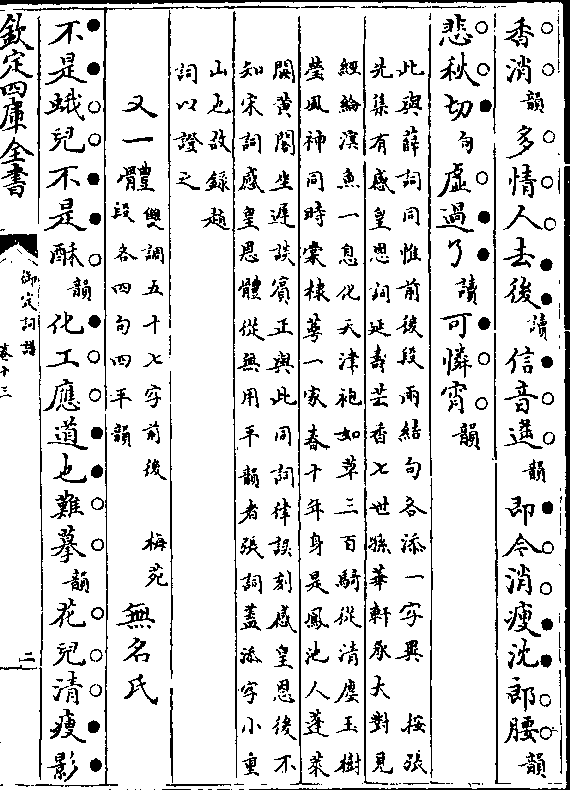 香消韻多情人去後讀信音遥韻即今消瘦沈郎腰韻
悲秋切句虚過了讀可憐宵韻
此與薛詞同惟前後段兩結句各添一字異　按張
先集有感皇恩詞延壽芸香七世孫華軒承大對見
經綸溟魚一息化天津袍如草三百騎從清塵玉樹
瑩風神同時棠棣萼一家春十年身是鳳池人蓬萊
閣黃閣坐遲談賓正與此同詞律誤刻感皇恩後不
知宋詞感皇恩體從無用平韻者張詞蓋添字小重
山也故録趙
詞以證之
又一體
雙調五十七字前後
段各四句四平韻
梅苑
無名氏
不是蛾兒不是酥韻化工應道也難摹韻花兒清瘦影
欽定四庫全書
御定詞譜
卷十三
二